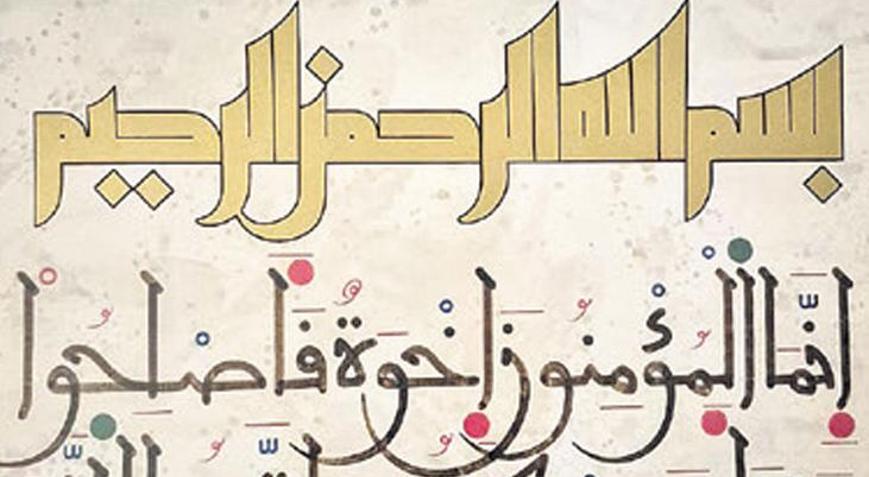 بسم الله الرحمن الرحيم
إِنَّمَا الْمُؤْمِنُونَ إِخْوَةٌ فَأَصْلِحُوا